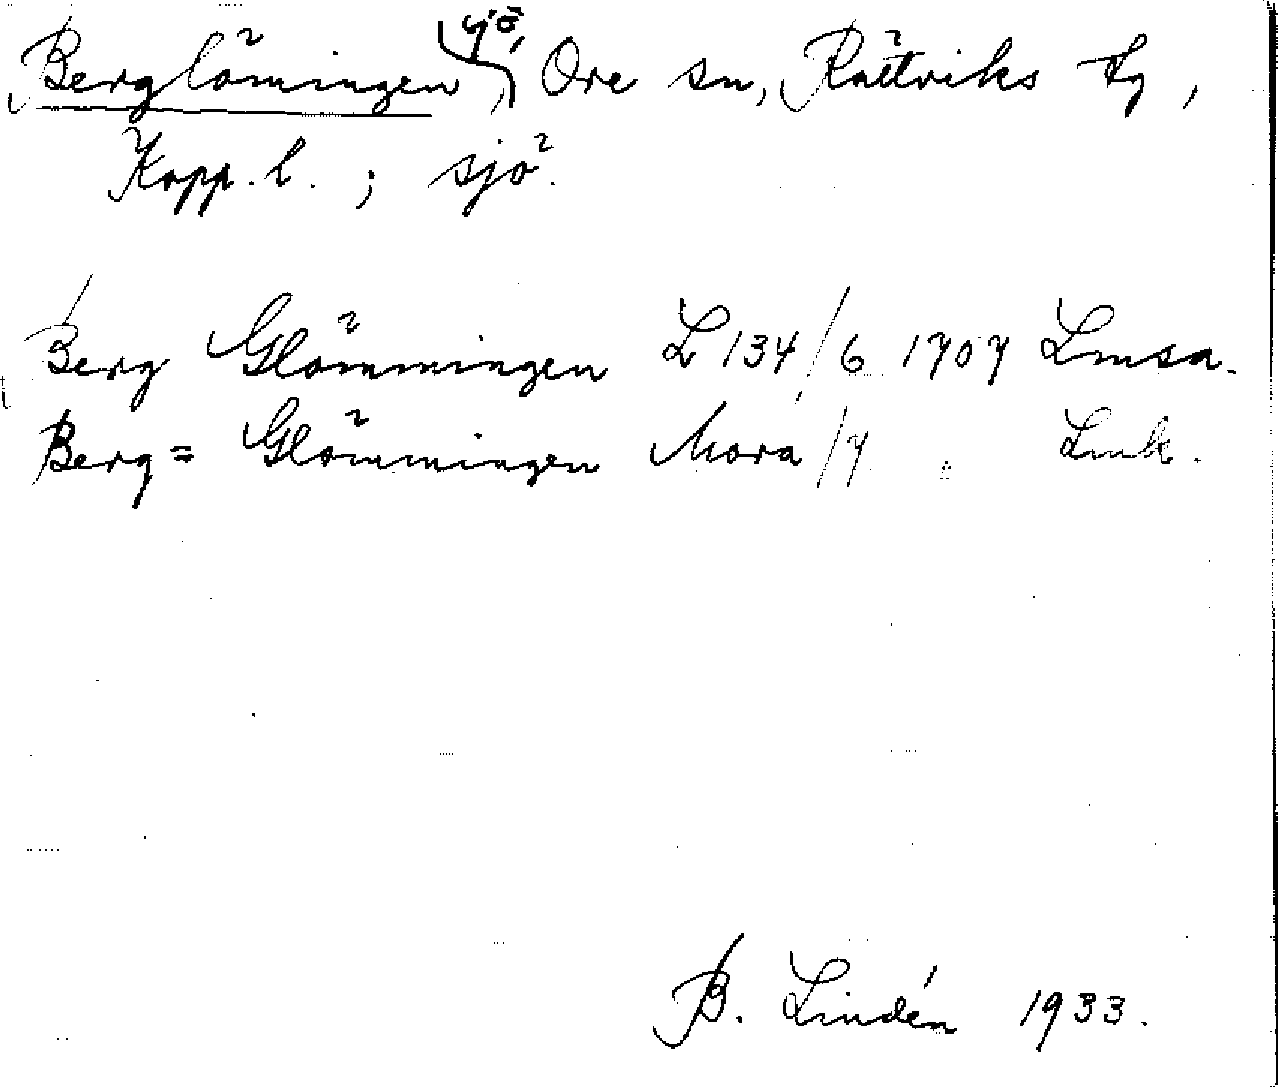 Berglömingen sjö, Ore sn, Rättviks tg,
Kopp. l. ; sjö.
Berg Glömmingen L 134/6 1707 Lmsa.
Berg= Glömmingen Mora/7 Lmk.
B. Lindén 1933.